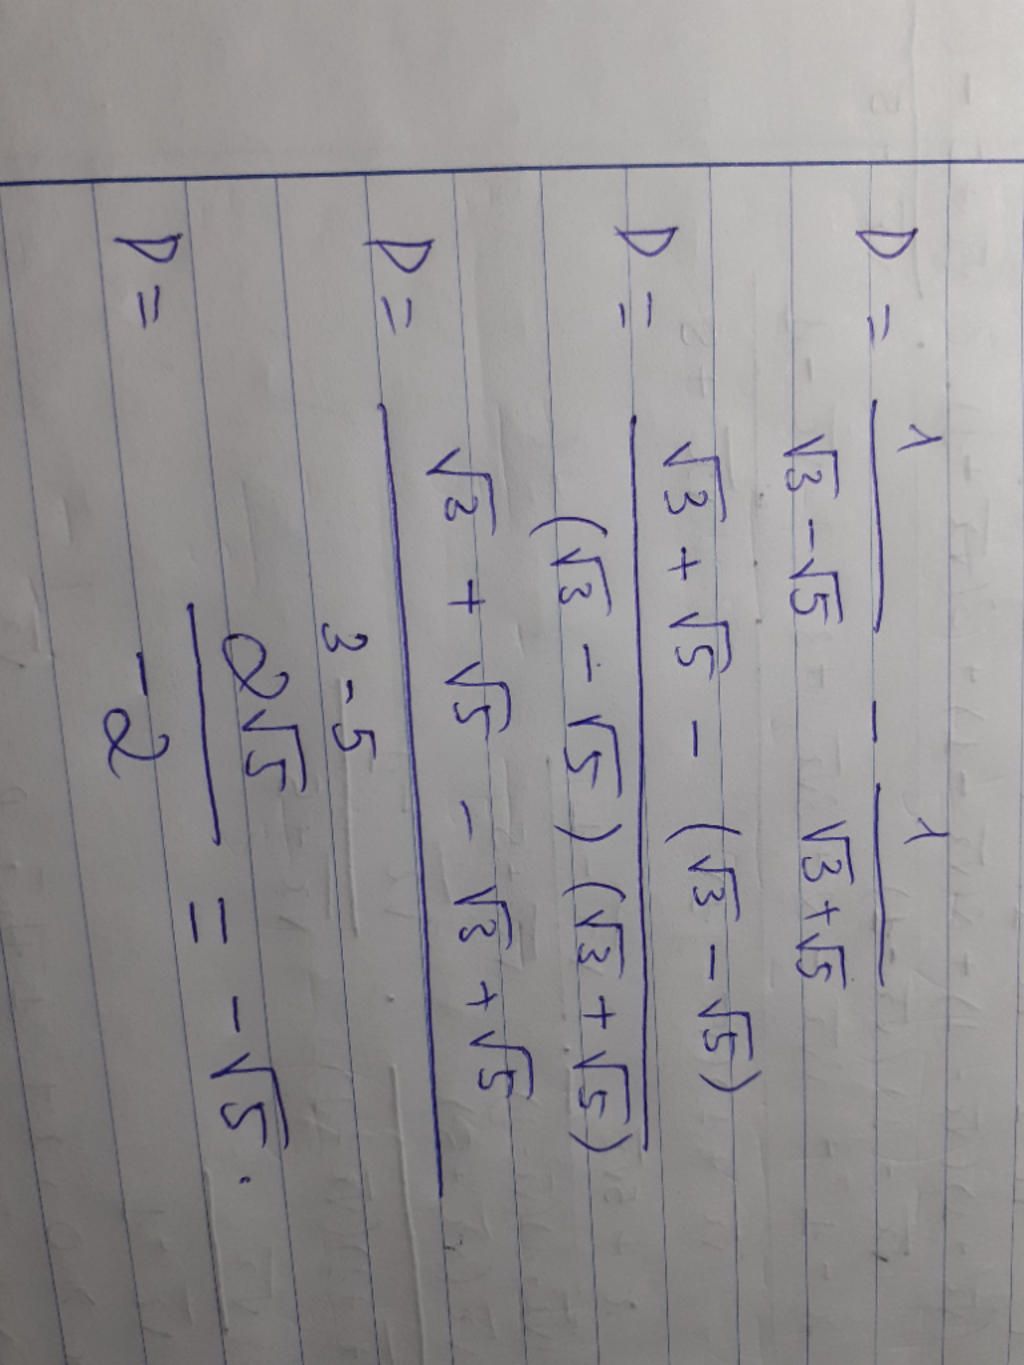 D = 1/(√3 - √5) - 1/(√3 + √5)
D = (√3 + √5 - (√3 - √5))/((√3 - √5)(√3 + √5))
D = (√3 + √5 - √3 + √5)/(3 - 5)
D = 2√5/-2 = -√5.